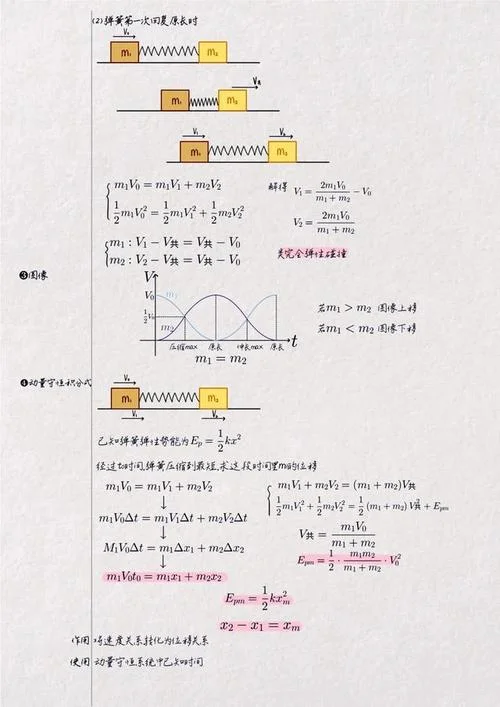 (2) 弹簧第一次回复原长时
V₀
m₁ m₂
V共
m₁ m₂
V₁ V₂
m₁ m₂
m₁V₀ = m₁V₁ + m₂V₂
½m₁V₀² = ½m₁V₁² + ½m₂V₂²
解得 V₁ = 2m₁V₀/(m₁ + m₂) − V₀
V₂ = 2m₁V₀/(m₁ + m₂)
m₁ : V₁ − V共 = V共 − V₀
m₂ : V₂ − V共 = V共 − 0
类完全弹性碰撞
③图像
V
V₀ m₁
½V₀
m₂
压缩max 原长 伸长max 原长 t
m₁ = m₂
若m₁ > m₂ 图像上移
若m₁ < m₂ 图像下移
④动量守恒积分式
V₀
m₁ m₂
V₁ V₂
已知弹簧弹性势能为Eₚ = ½kx²
经过t₀时间,弹簧压缩到最短,求这段时间里m的位移
m₁V₀ = m₁V₁ + m₂V₂
↓
m₁V₀Δt = m₁V₁Δt + m₂V₂Δt
↓
M₁V₀Δt = m₁Δx₁ + m₂Δx₂
↓
m₁V₀t₀ = m₁x₁ + m₂x₂
m₁V₁ + m₂V₂ = (m₁ + m₂)V共
½m₁V₁² + ½m₂V₂² = ½(m₁ + m₂)V共² + Eₚₘ
V共 = m₁V₀/(m₁ + m₂)
Eₚₘ = ½ · m₁m₂/(m₁ + m₂) · V₀²
Eₚₘ = ½kxₘ²
x₂ − x₁ = xₘ
作用 将速度关系转化为位移关系
使用 动量守恒系统中已知时间